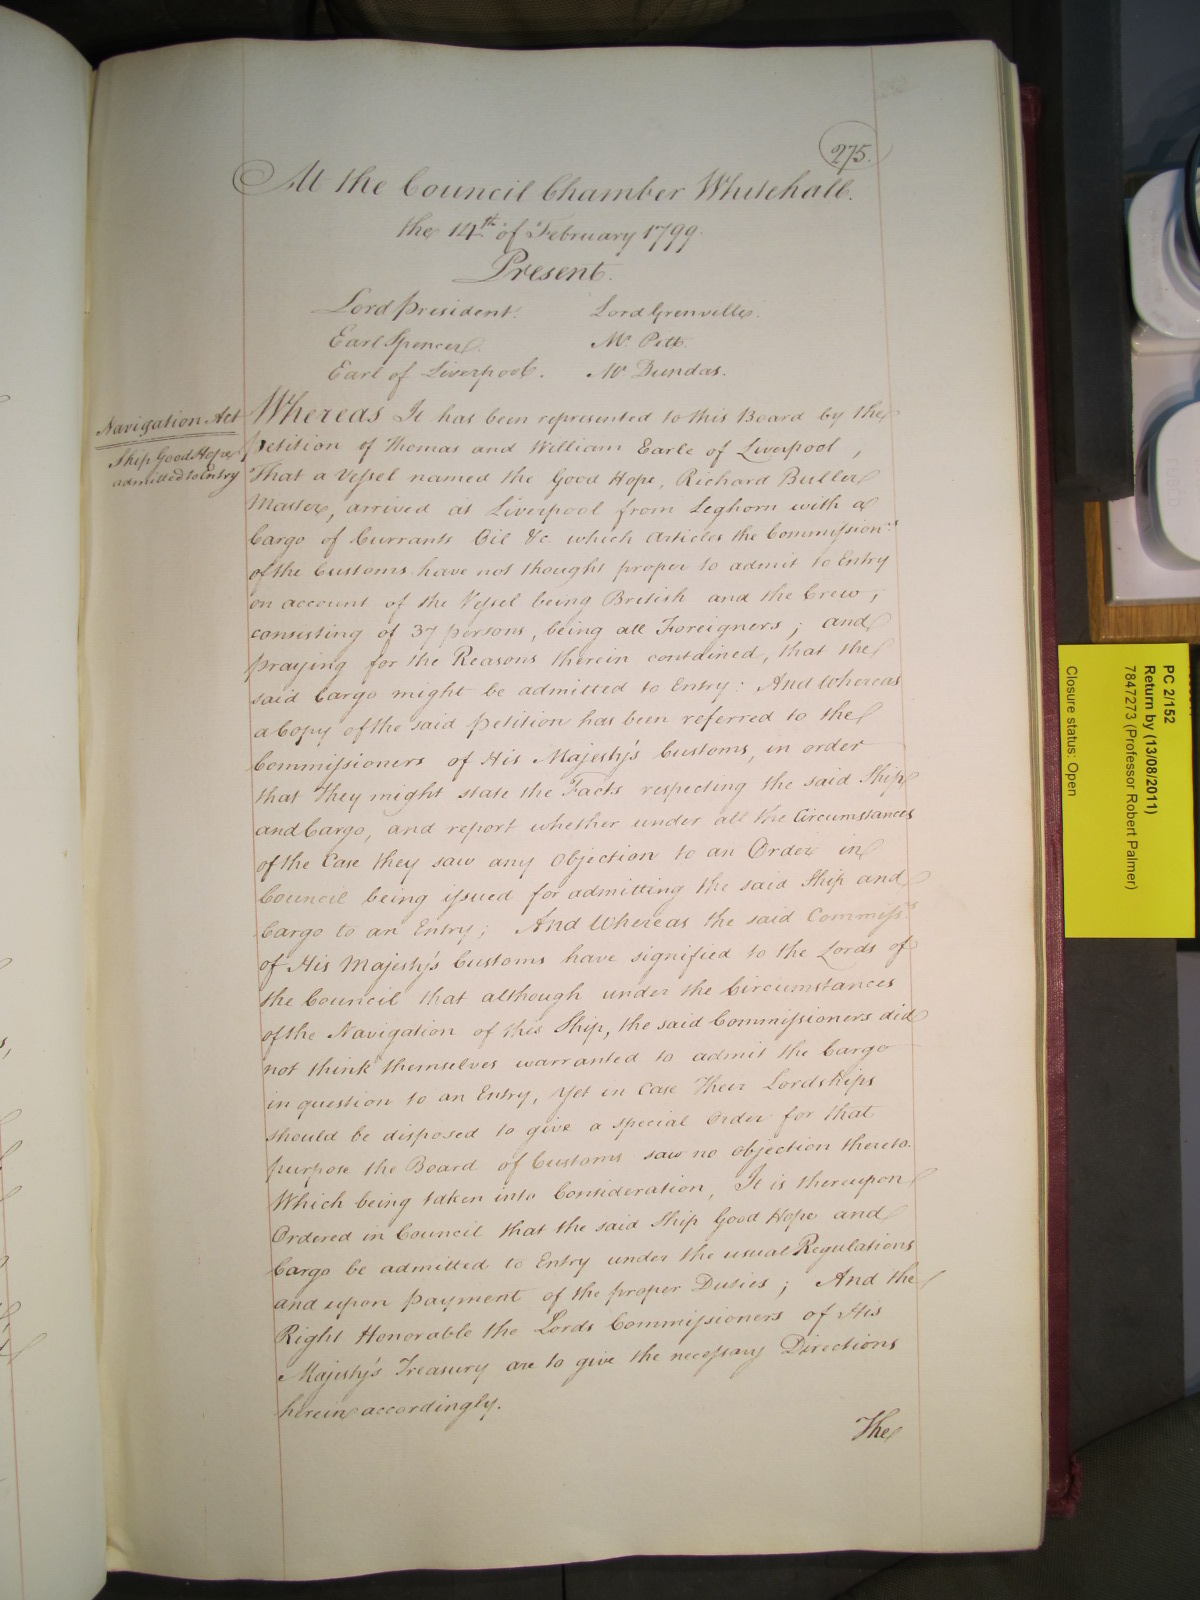 275.
At the Council Chamber Whitehall.
the 14th of February 1799.
Present.
Lord President. Lord Grenville.
Earl Spencer. Mr Pitt.
Earl of Liverpool. Mr Dundas.
Navigation Act
Ship Good Hope
admitted to Entry
Whereas It has been represented to this Board by the
petition of Thomas and William Earle of Liverpool,
That a Vessel named the Good Hope, Richard Buller
Master, arrived at Liverpool from Leghorn with a
Cargo of Currants Oil &c. which Articles the Commissionrs
of the Customs have not thought proper to admit to Entry
on account of the Vessel being British and the Crew,
consisting of 37 persons, being all Foreigners; and
praying for the Reasons therein contained, that the
said Cargo might be admitted to Entry: And Whereas
a Copy of the said petition has been referred to the
Commissioners of His Majesty's Customs, in order
that They might state the Facts respecting the said Ship
and Cargo, and report whether under all the Circumstances
of the Case they saw any Objection to an Order in
Council being issued for admitting the said Ship and
Cargo to an Entry; And Whereas the said Commissrs
of His Majesty's Customs have signified to the Lords of
the Council that although under the Circumstances
of the Navigation of this Ship, the said Commissioners did
not think themselves warranted to admit the Cargo
in question to an Entry, Yet in Case Their Lordships
should be disposed to give a special Order for that
purpose the Board of Customs saw no objection thereto.
Which being taken into Consideration, It is thereupon
Ordered in Council that the said Ship Good Hope and
Cargo be admitted to Entry under the usual Regulations
and upon payment of the proper Duties; And the
Right Honorable the Lords Commissioners of His
Majesty's Treasury are to give the necessary Directions
herein accordingly.
The
PC 2/152
Return by (13/08/2011)
7847273 (Professor Robert Palmer)
Closure status: Open